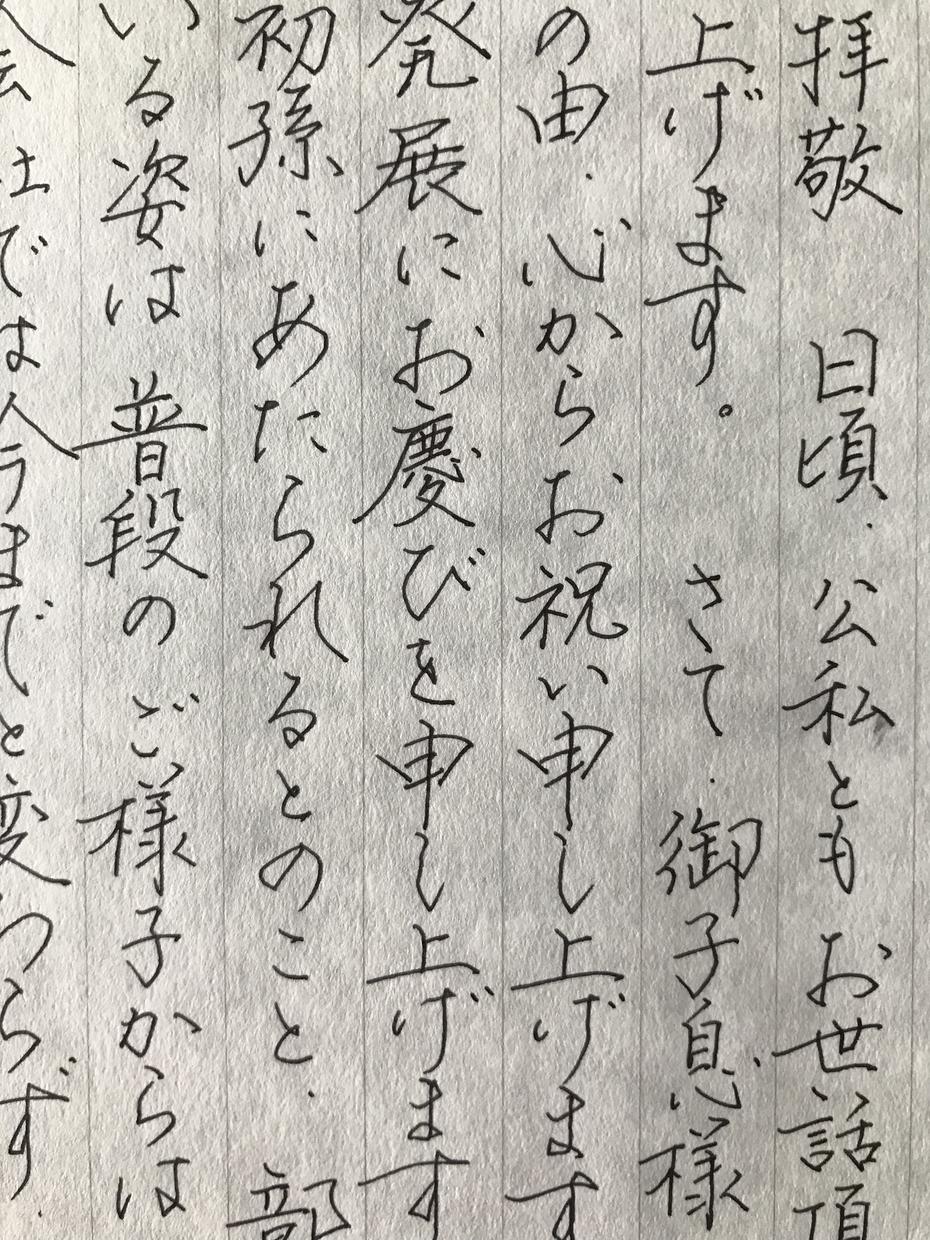 拝敬 日頃、公私ともお世話頂
上げます。 さて、御子息様
の由、心からお祝い申し上げます
発展にお慶びを申し上げます
初孫にあたられるとのこと、部
いる姿は普段のご様子からは
社では今までと変わらず、